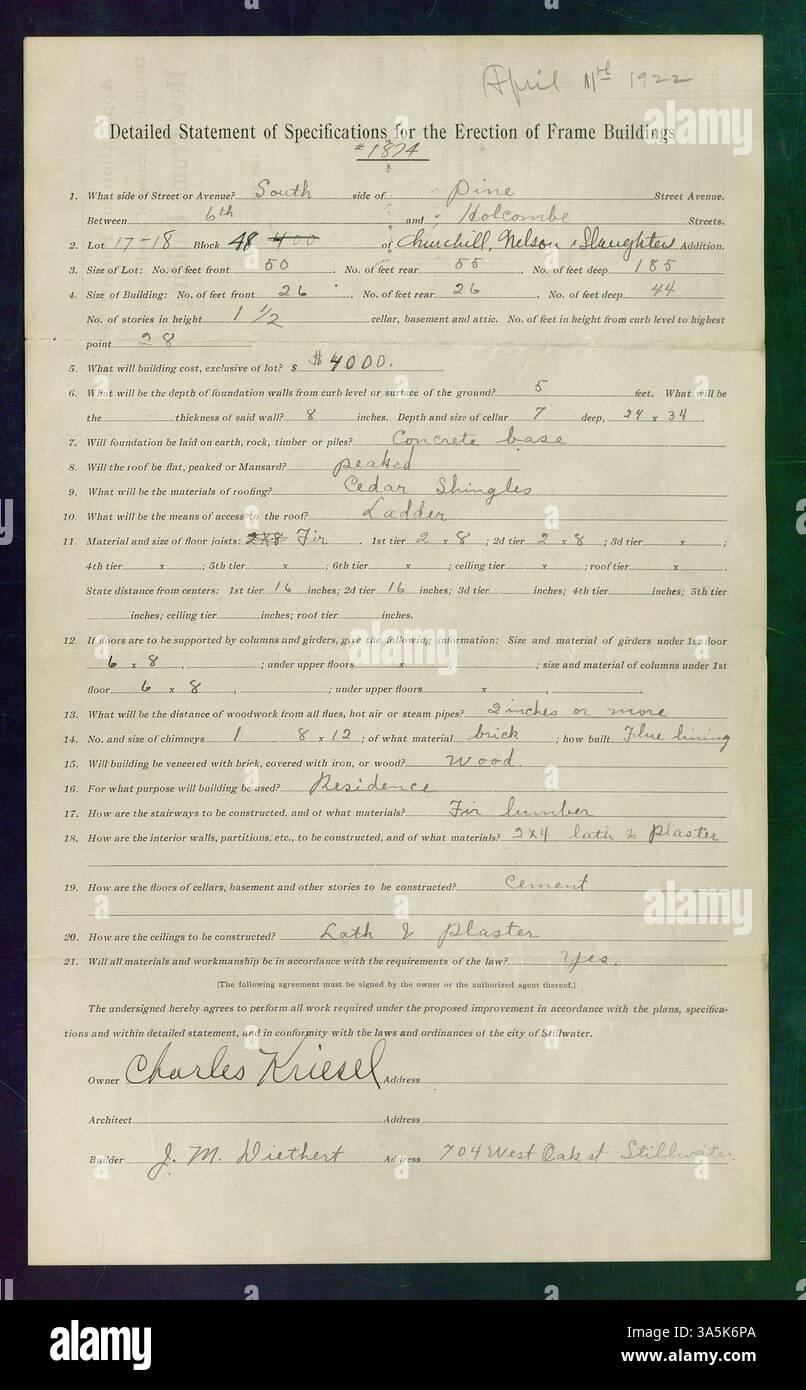 April 11th 1922
Detailed Statement of Specifications for the Erection of Frame Buildings
#1874
1. What side of Street or Avenue? South side of Pine Street Avenue.
Between 6th and Holcombe Streets.
2. Lot 17-18 Block 48 400 of Churchill, Nelson & Slaughter Addition.
3. Size of Lot: No. of feet front 50. No. of feet rear 55. No. of feet deep 185
4. Size of Building: No. of feet front 26. No. of feet rear 26. No. of feet deep 44
No. of stories in height 1 1/2 cellar, basement and attic. No. of feet in height from curb level to highest
point 28
5. What will building cost, exclusive of lot? $ $4000.
6. What will be the depth of foundation walls from curb level or surface of the ground? 5 feet. What will be
the thickness of said wall? 8 inches. Depth and size of cellar 7 deep, 24 x 34.
7. Will foundation be laid on earth, rock, timber or piles? Concrete base
8. Will the roof be flat, peaked or Mansard? peaked
9. What will be the materials of roofing? Cedar Shingles
10. What will be the means of access to the roof? Ladder
11. Material and size of floor joists: 2x8 Fir. 1st tier 2 x 8; 2d tier 2 x 8; 3d tier x ;
4th tier x ; 5th tier x ; 6th tier x ; ceiling tier x ; roof tier x .
State distance from centers: 1st tier 16 inches; 2d tier 16 inches; 3d tier inches; 4th tier inches; 5th tier
inches; ceiling tier inches; roof tier inches.
12. If floors are to be supported by columns and girders, give the following information: Size and material of girders under 1st floor
6 x 8, ; under upper floors x , ; size and material of columns under 1st
floor 6 x 8, ; under upper floors x , .
13. What will be the distance of woodwork from all flues, hot air or steam pipes? 2 inches or more
14. No. and size of chimneys 1 8 x 12; of what material brick; how built Flue lining
15. Will building be veneered with brick, covered with iron, or wood? Wood.
16. For what purpose will building be used? Residence
17. How are the stairways to be constructed, and of what materials? Fir lumber
18. How are the interior walls, partitions, etc., to be constructed, and of what materials? 2x4 lath & Plaster
19. How are the floors of cellars, basement and other stories to be constructed? Cement
20. How are the ceilings to be constructed? Lath & Plaster
21. Will all materials and workmanship be in accordance with the requirements of the law? Yes.
(The following agreement must be signed by the owner or the authorized agent thereof.)
The undersigned hereby agrees to perform all work required under the proposed improvement in accordance with the plans, specifica-
tions and within detailed statement, and in conformity with the laws and ordinances of the city of Stillwater.
Owner Charles Kriesel Address
Architect Address
Builder J. M. Diethert Address 704 West Oak st Stillwater
alamy
Image ID: 3A5K6PA
www.alamy.com